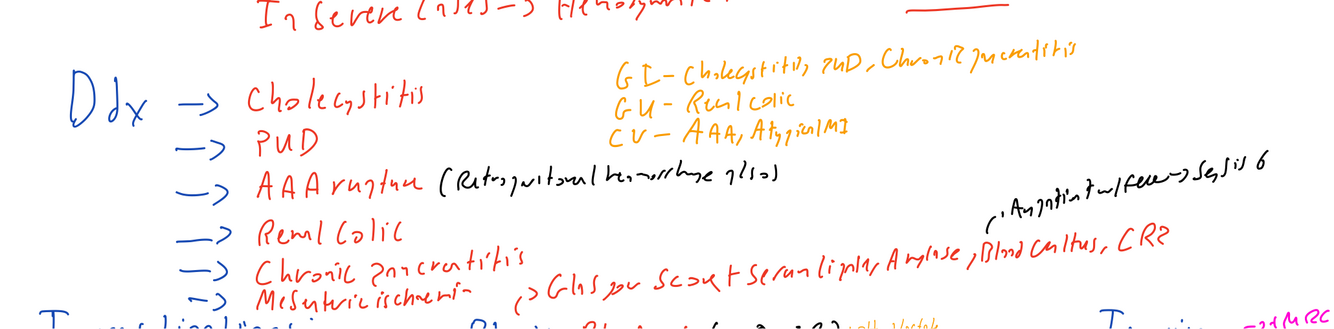 In Severe Cases →
Ddx → Cholecystitis
→ PUD
→ AAA rupture (Retroperitoneal hemorrhage also)
→ Renal Colic
→ Chronic pancreatitis
→ Mesenteric ischaemia
GI - Cholecystitis, PUD, Chronic pancreatitis
GU - Renal colic
CV - AAA, Atypical MI
Any patient w/ fever → Sepsis 6
→ Glasgow Score + Serum lipase, Amylase, Blood cultures, CRP